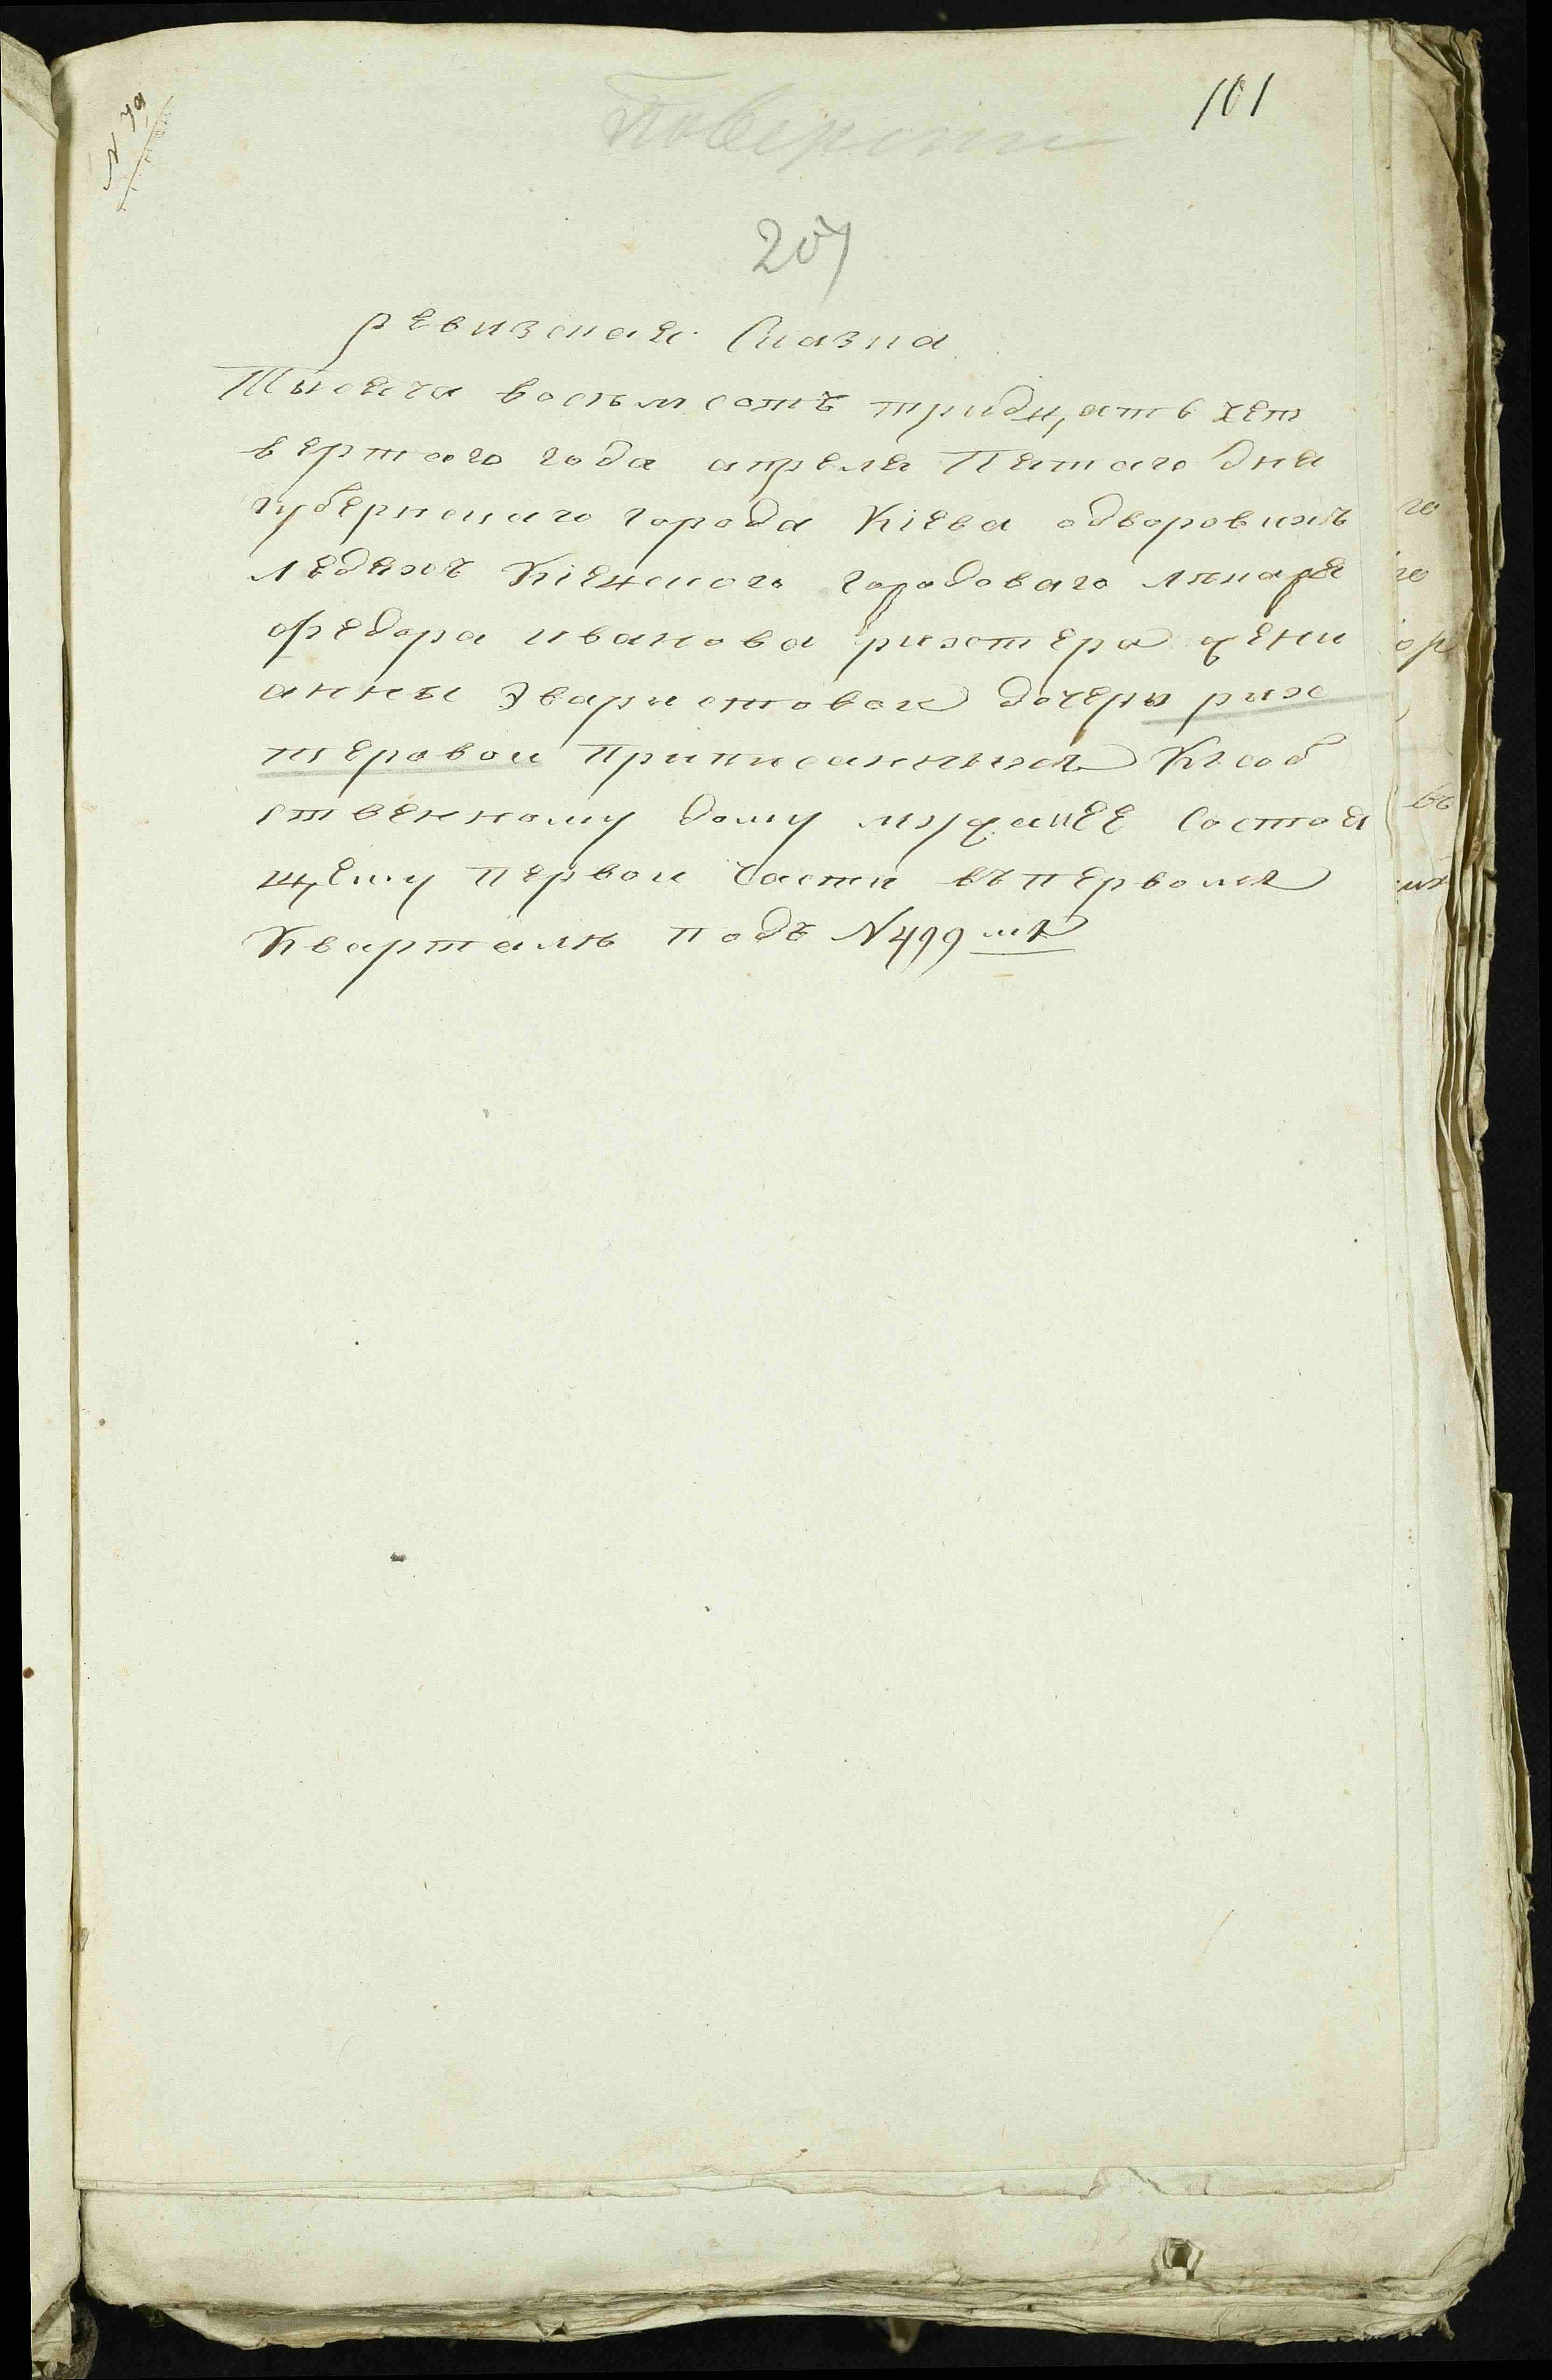 101
N 79
207
ревизская Сказка
Тысяча восьмсотъ тридцать чет
вертаго года апреля Пятаго дня
губернскаго города Кіева одворовихъ
людяхъ Кіевского городоваго лекаря
федора иванова рихтера жени
анны Эваристовой дочери рих
теровой приписанныхъ Ксоб
ственному дому мужа ее Состоя
щему первой части въ первомъ
Кварталѣ подъ N 499 мъ